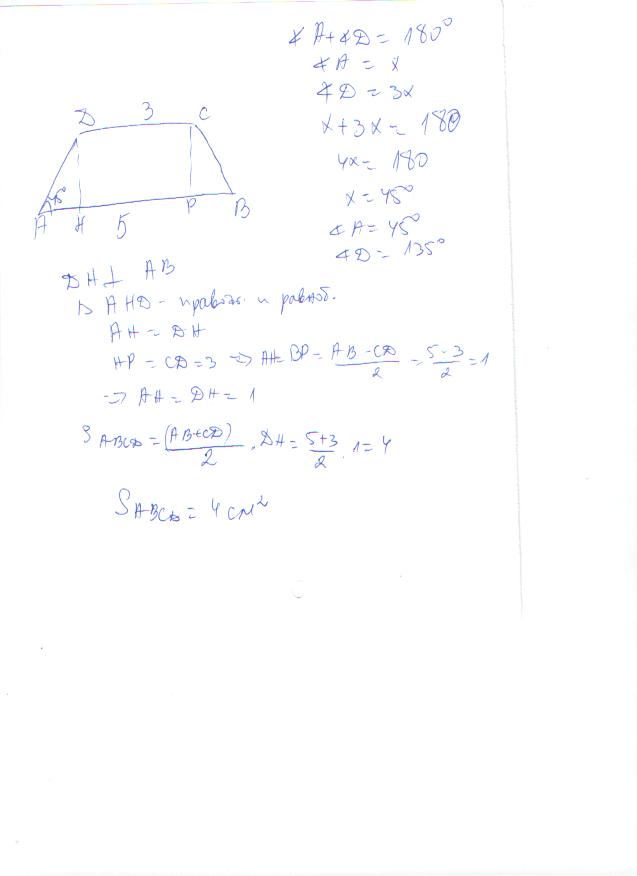 ∡ A + ∡ D = 180°
∡ A = x
∡ D = 3x
x + 3x = 180
4x = 180
x = 45°
∡ A = 45°
∡ D = 135°
D 3 C
45°
A H 5 P B
DH ⊥ AB
△ AHD - правоъг. и равноб.
AH = DH
HP = CD = 3 => AH = BP = (AB - CD)/2 = (5 - 3)/2 = 1
=> AH = DH = 1
S ABCD = (AB+CD)/2 . DH = (5+3)/2 . 1 = 4
S ABCD = 4 см²